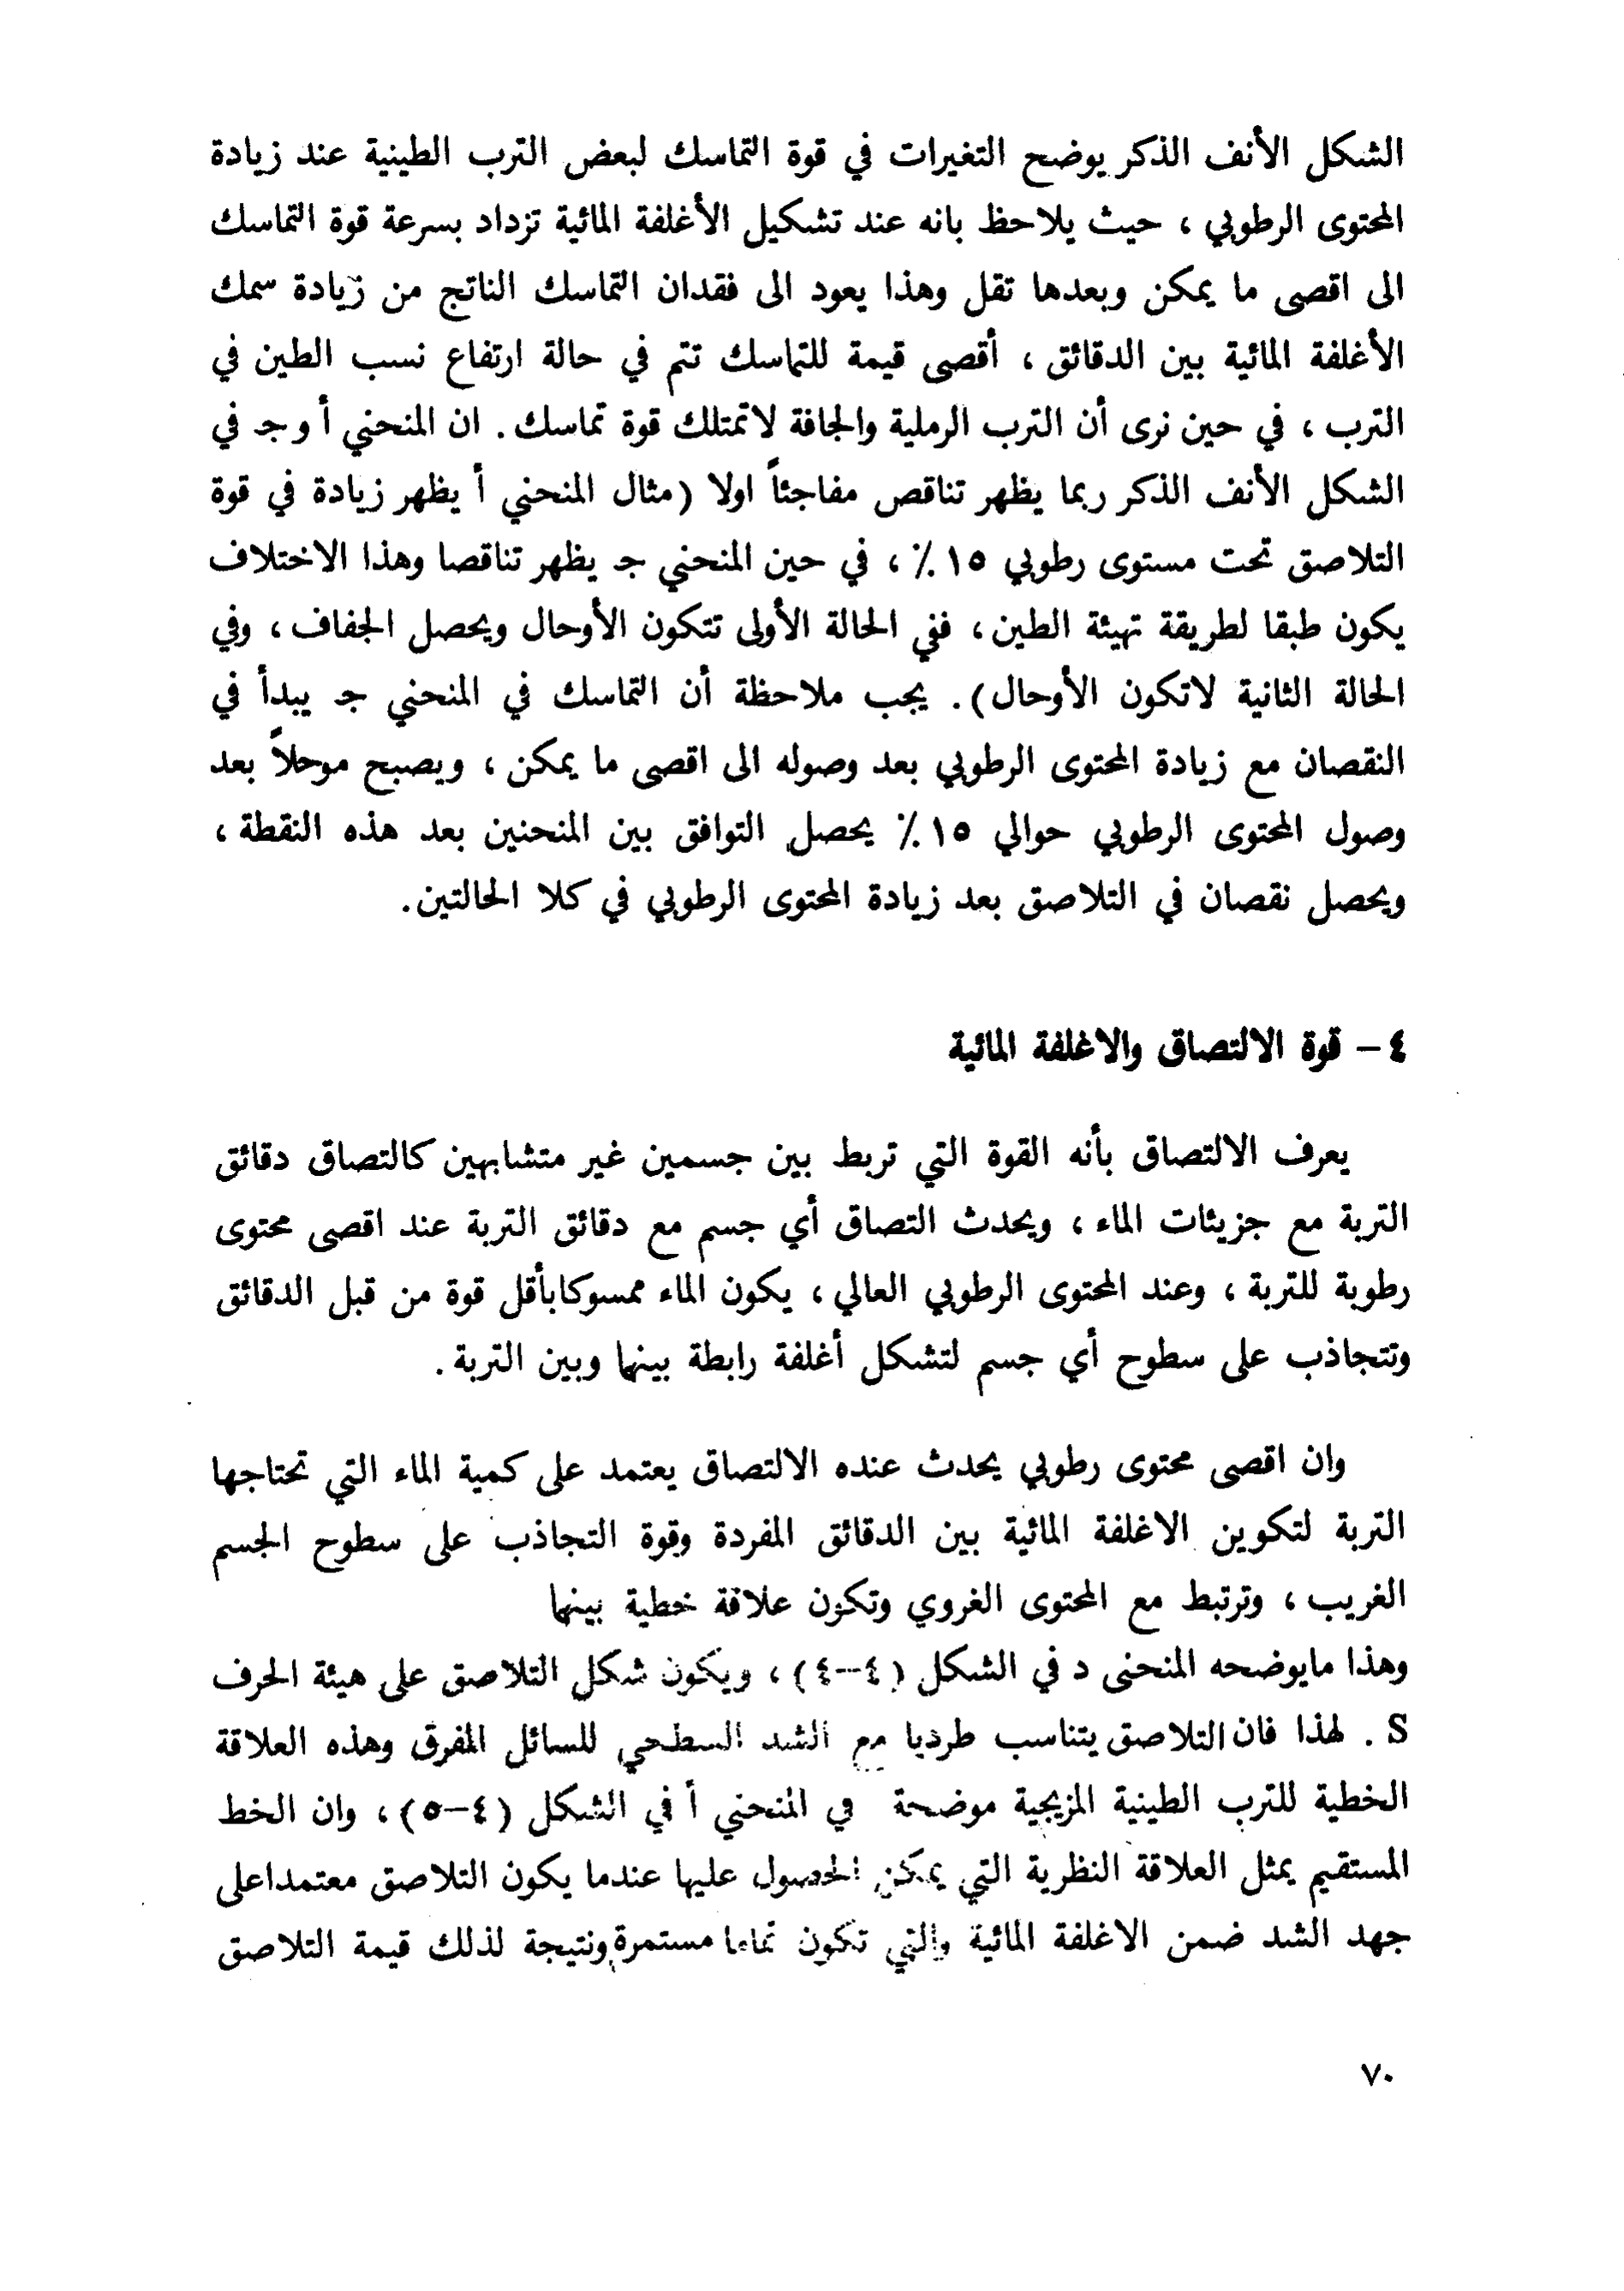 الشكل الأنف الذكر يوضح التغيرات في قوة التماسك لبعض الترب الطينية عند زيادة
المحتوى الرطوبي ، حيث يلاحظ بانه عند تشكيل الأغلفة المائية تزداد بسرعة قوة التماسك
الى اقصى ما يمكن وبعدها تقل وهذا يعود الى فقدان التماسك الناتج من زيادة سمك
الأغلفة المائية بين الدقائق ، أقصى قيمة للتماسك تتم في حالة ارتفاع نسب الطين في
الترب ، في حين نرى أن الترب الرملية والجافة لاتمتلك قوة تماسك . ان المنحني أ و جـ في
الشكل الأنف الذكر ربما يظهر تناقص مفاجئاً اولا (مثال المنحني أ يظهر زيادة في قوة
التلاصق تحت مستوى رطوبي ١٥ ٪ ، في حين المنحني جـ يظهر تناقصا وهذا الاختلاف
يكون طبقا لطريقة تهيئة الطين ، ففي الحالة الأولى تتكون الأوحال ويحصل الجفاف ، وفي
الحالة الثانية لاتكون الأوحال) . يجب ملاحظة أن التماسك في المنحني جـ يبدأ في
النقصان مع زيادة المحتوى الرطوبي بعد وصوله الى اقصى ما يمكن ، ويصبح موحلاً بعد
وصول المحتوى الرطوبي حوالي ١٥ ٪ يحصل التوافق بين المنحنين بعد هذه النقطة ،
ويحصل نقصان في التلاصق بعد زيادة المحتوى الرطوبي في كلا الحالتين .
٤ – قوة الالتصاق والاغلفة المائية
يعرف الالتصاق بأنه القوة التي تربط بين جسمين غير متشابهين كالتصاق دقائق
التربة مع جزيئات الماء ، ويحدث التصاق أي جسم مع دقائق التربة عند اقصى محتوى
رطوبة للتربة ، وعند المحتوى الرطوبي العالي ، يكون الماء ممسوكابأقل قوة من قبل الدقائق
وتتجاذب على سطوح أي جسم لتشكل أغلفة رابطة بينها وبين التربة .
وان اقصى محتوى رطوبي يحدث عنده الالتصاق يعتمد على كمية الماء التي تحتاجها
التربة لتكوين الاغلفة المائية بين الدقائق المفردة وقوة التجاذب على سطوح الجسم
الغريب ، وترتبط مع المحتوى الغروي وتكون علاقة خطية بينهما
وهذا مايوضحه المنحنى د في الشكل (٤–٤) ، ويكون شكل التلاصق على هيئة الحرف
S . لهذا فان التلاصق يتناسب طرديا مع الشد السطحي للسائل المفرق وهذه العلاقة
الخطية للترب الطينية المزيجية موضحة في المنحني أ في الشكل (٤–٥) ، وان الخط
المستقيم يمثل العلاقة النظرية التي يمكن الحصول عليها عندما يكون التلاصق معتمداعلى
جهد الشد ضمن الاغلفة المائية والتي تكون تماما مستمرة ونتيجة لذلك قيمة التلاصق
٧٠